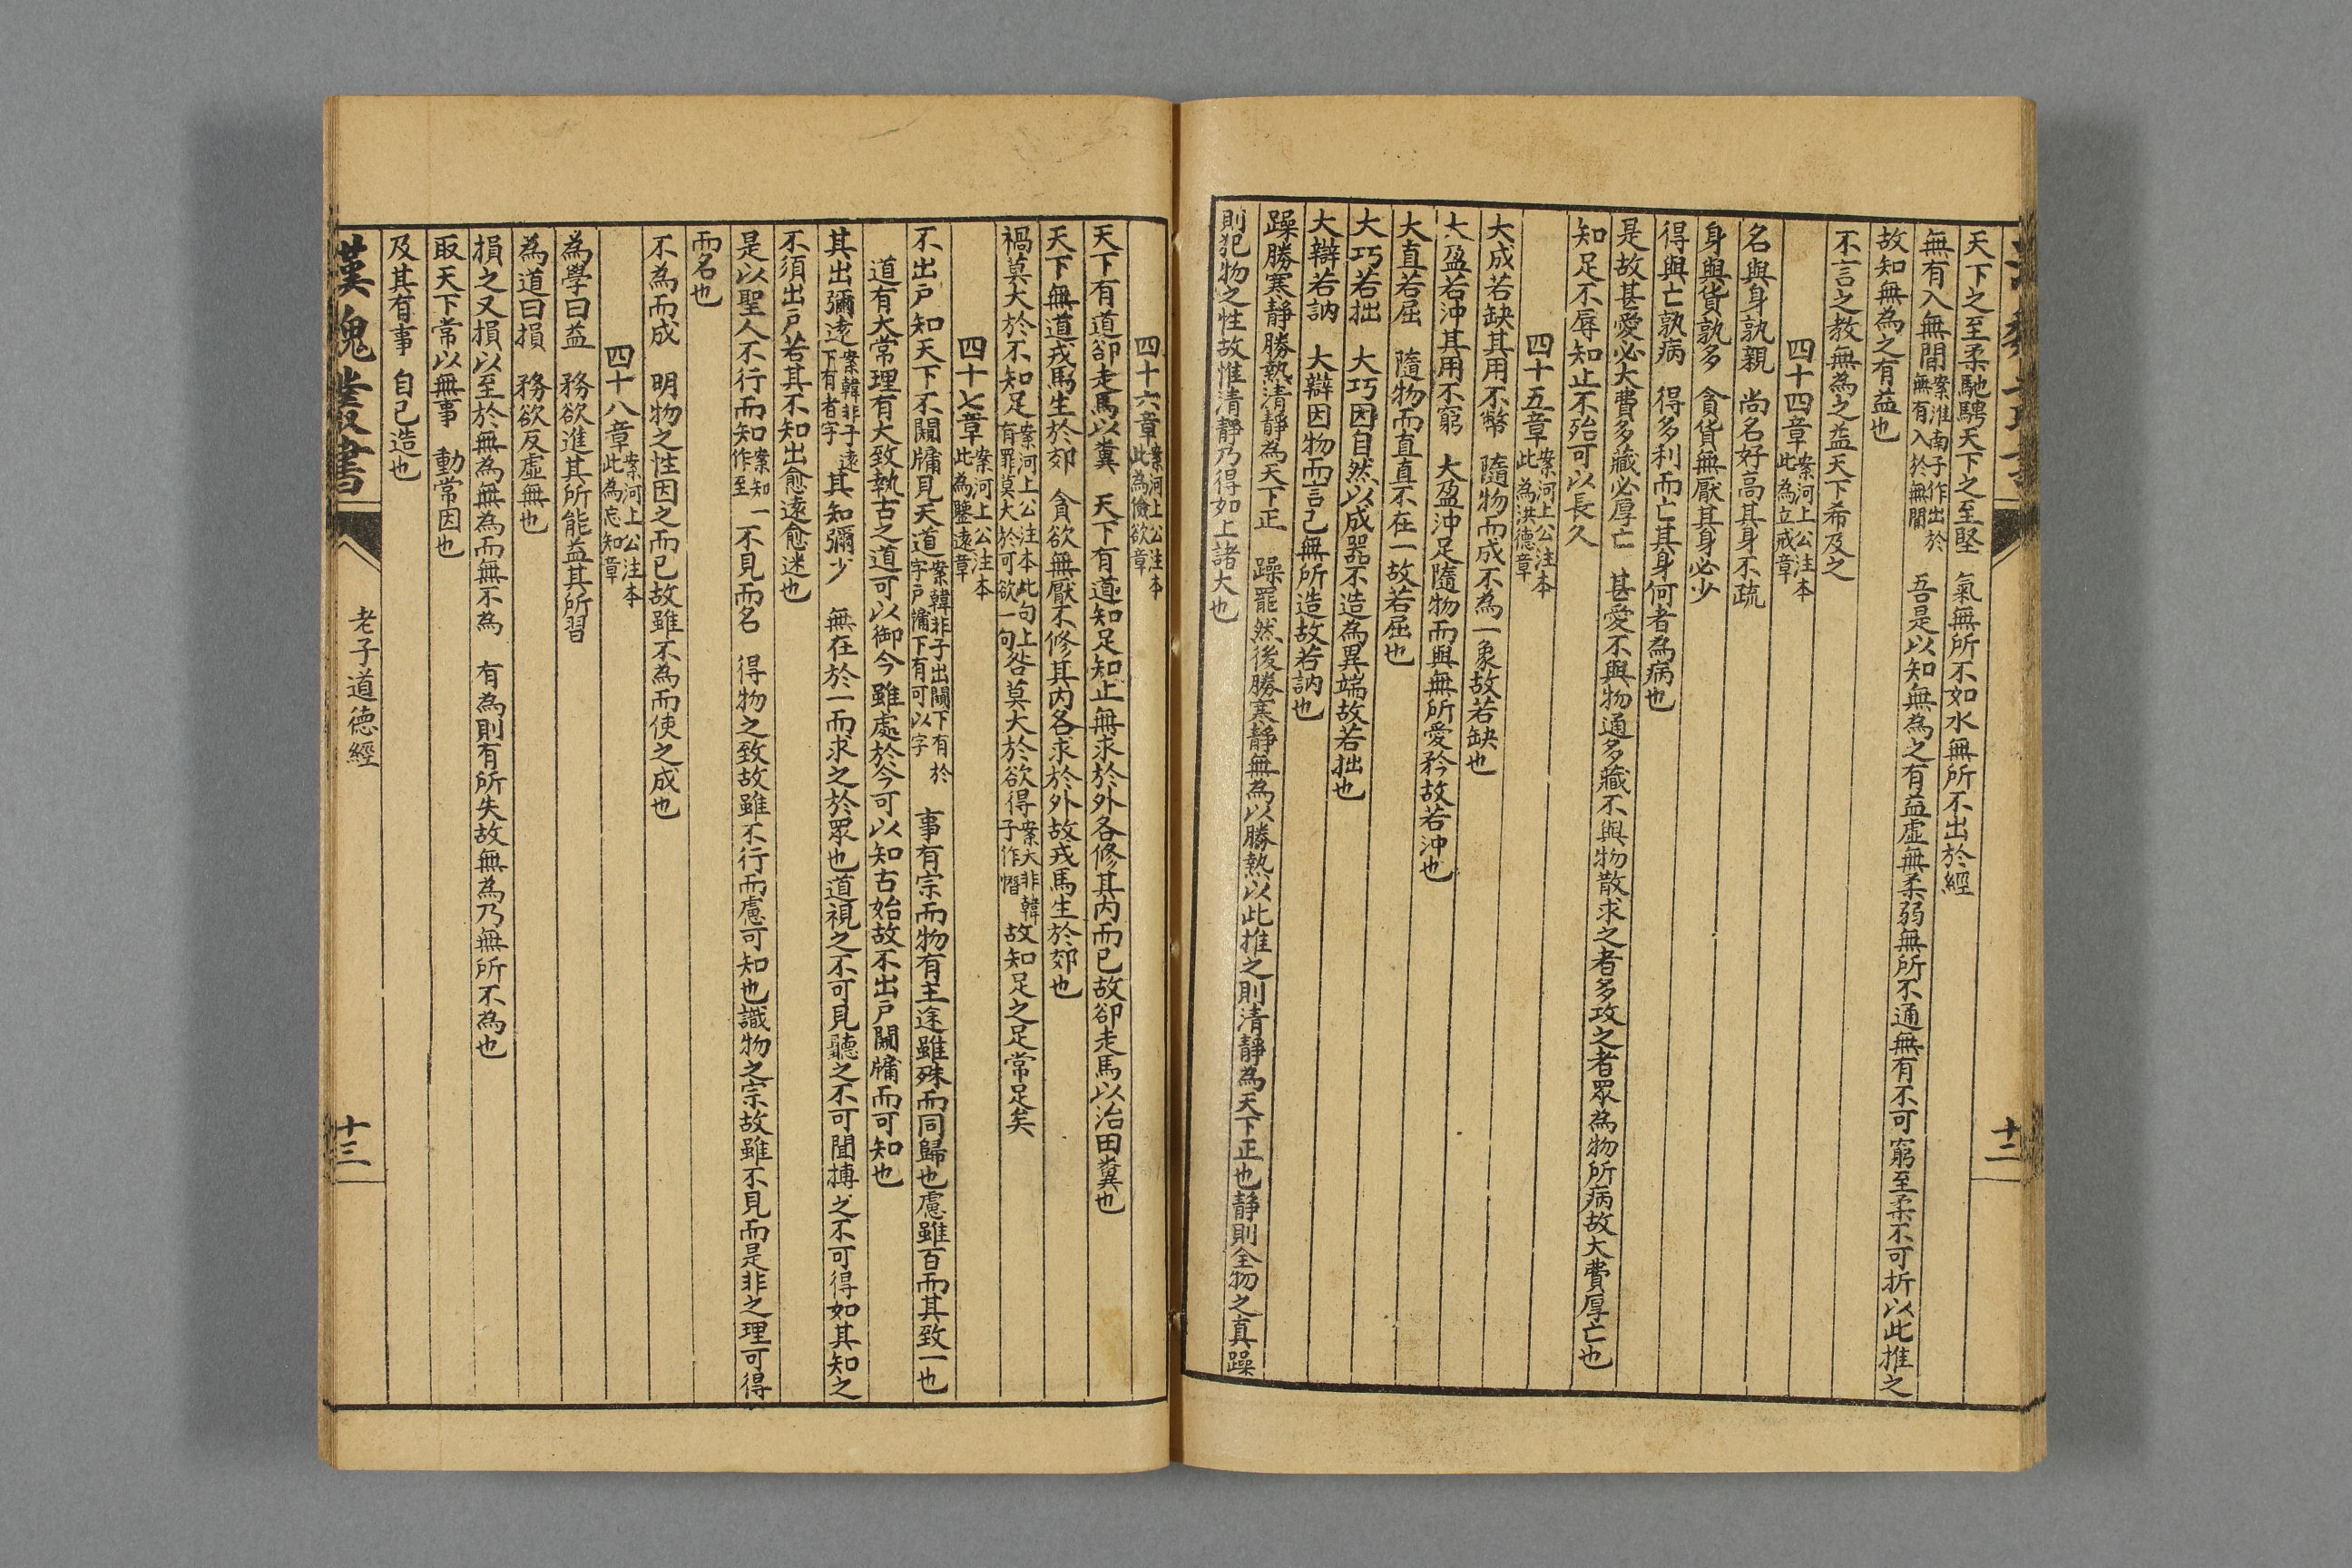 天下之至柔馳騁天下之至堅　氣無所不如水無所不出於經
無有入無間案淮南子作出於無有入於無間　吾是以知無為之有益虛無柔弱無所不通無有不可窮至柔不可折以此推之
故知無為之有益也
不言之教無為之益天下希及之
四十四章案河上公注本此為立戒章
名與身孰親　尚名好高其身不疏
身與貨孰多　貪貨無厭其身必少
得與亡孰病　得多利而亡其身何者為病也
是故甚愛必大費多藏必厚亡　甚愛不與物通多藏不與物散求之者多攻之者眾為物所病故大費厚亡也
知足不辱知止不殆可以長久
四十五章案河上公注本此為洪德章
大成若缺其用不弊　隨物而成不為一象故若缺也
大盈若沖其用不窮　大盈沖足隨物而與無所愛矜故若沖也
大直若屈　隨物而直直不在一故若屈也
大巧若拙　大巧因自然以成器不造為異端故若拙也
大辯若訥　大辯因物而言己無所造故若訥也
躁勝寒靜勝熱清靜為天下正　躁罷然後勝寒靜無為以勝熱以此推之則清靜為天下正也靜則全物之真躁
則犯物之性故惟清靜乃得如上諸大也
十二
四十六章案河上公注本此為儉欲章
天下有道卻走馬以糞　天下有道知足知止無求於外各修其內而已故卻走馬以治田糞也
天下無道戎馬生於郊　貪欲無厭不修其內各求於外故戎馬生於郊也
禍莫大於不知足案河上公注本此句上有罪莫大於可欲一句咎莫大於欲得案大韓非子作憯故知足之足常足矣
四十七章案河上公注本此為鑒遠章
不出戶知天下不闚牖見天道案韓非子出闚下有於字戶牖下有可以字　事有宗而物有主途雖殊而同歸也慮雖百而其致一也
道有大常理有大致執古之道可以御今雖處於今可以知古始故不出戶闚牖而可知也
其出彌遠案韓非子遠下有者字其知彌少　無在於一而求之於眾也道視之不可見聽之不可聞搏之不可得如其知之
不須出戶若其不知出愈遠愈迷也
是以聖人不行而知案知一作至不見而名　得物之致故雖不行而慮可知也識物之宗故雖不見而是非之理可得
而名也
不為而成　明物之性因之而已故雖不為而使之成也
四十八章案河上公注本此為忘知章
為學日益　務欲進其所能益其所習
為道日損　務欲反虛無也
損之又損以至於無為無為而無不為　有為則有所失故無為乃無所不為也
取天下常以無事　動常因也
及其有事　自己造也
漢魂堂叢書　老子道德經　十三